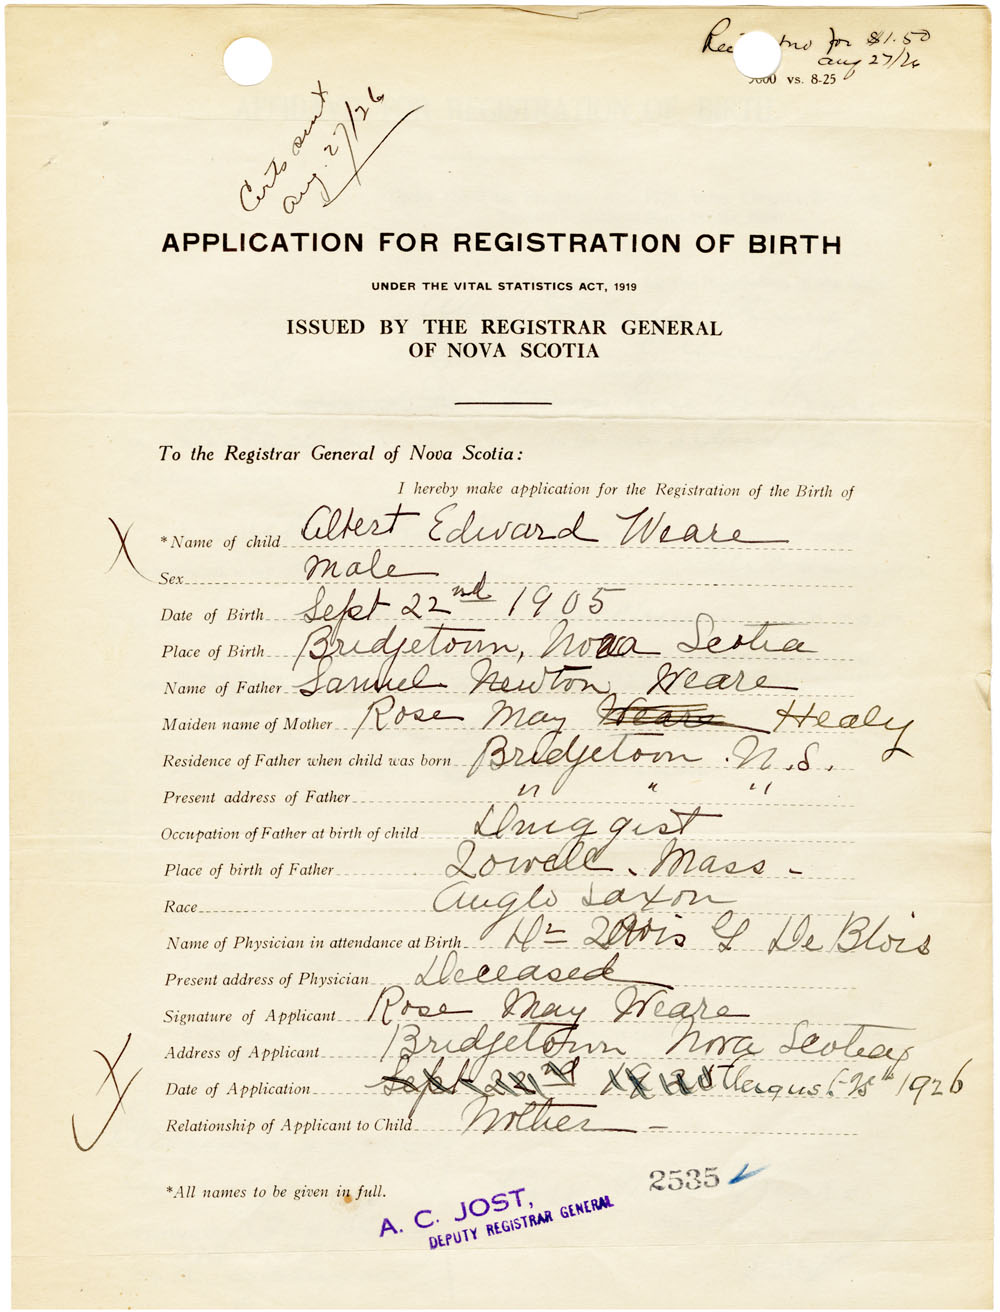 for $1.50
Aug 27/26
5000 vs. 8-25
Certs sent
Aug. 27/26
APPLICATION FOR REGISTRATION OF BIRTH
UNDER THE VITAL STATISTICS ACT, 1919
ISSUED BY THE REGISTRAR GENERAL
OF NOVA SCOTIA
To the Registrar General of Nova Scotia:
I hereby make application for the Registration of the Birth of
*Name of child Albert Edward Weare
Sex Male
Date of Birth Sept 22nd 1905
Place of Birth Bridgetown, Nova Scotia
Name of Father Samuel Newton Weare
Maiden name of Mother Rose May Weare Healy
Residence of Father when child was born Bridgetown N.S.
Present address of Father " " "
Occupation of Father at birth of child Druggist
Place of birth of Father Lowell, Mass -
Race Anglo Saxon
Name of Physician in attendance at Birth Dr Lewis G De Blois
Present address of Physician Deceased
Signature of Applicant Rose May Weare
Address of Applicant Bridgetown Nova Scotia
Date of Application Sept 22nd August 25th 1926
Relationship of Applicant to Child Mother -
*All names to be given in full.
2535
A. C. JOST,
DEPUTY REGISTRAR GENERAL